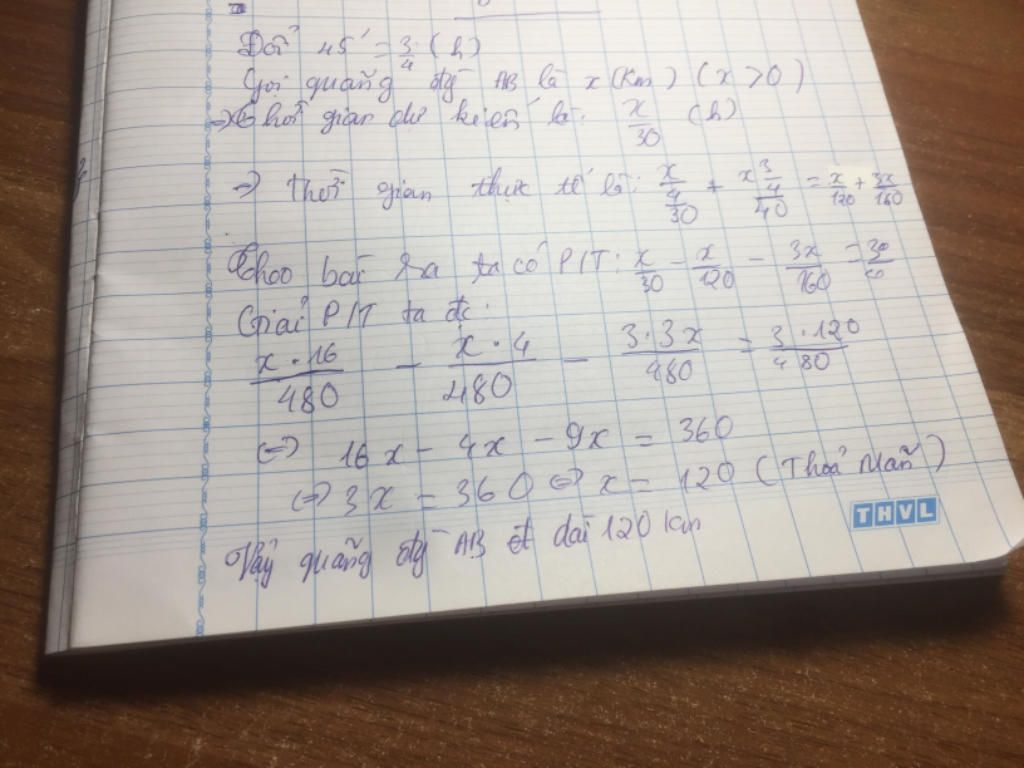 Đổi 45' = 3/4 (h)
Gọi quãng đg AB là x (Km) (x > 0)
=> Thời gian dự kiến là: x/30 (h)
=> Thời gian thực tế là: (x/4)/30 + (x 3/4)/40 = x/120 + 3x/160
Theo bài ra ta có P/T: x/30 - x/120 - 3x/160 = 30/60
Giải P/T ta đc:
x.16/480 - x.4/480 - 3.3x/480 = 3.120/480
<=> 16x - 4x - 9x = 360
<=> 3x = 360 <=> x = 120 (Thoả Mãn)
Vậy quãng đg AB dài 120 km
THVL